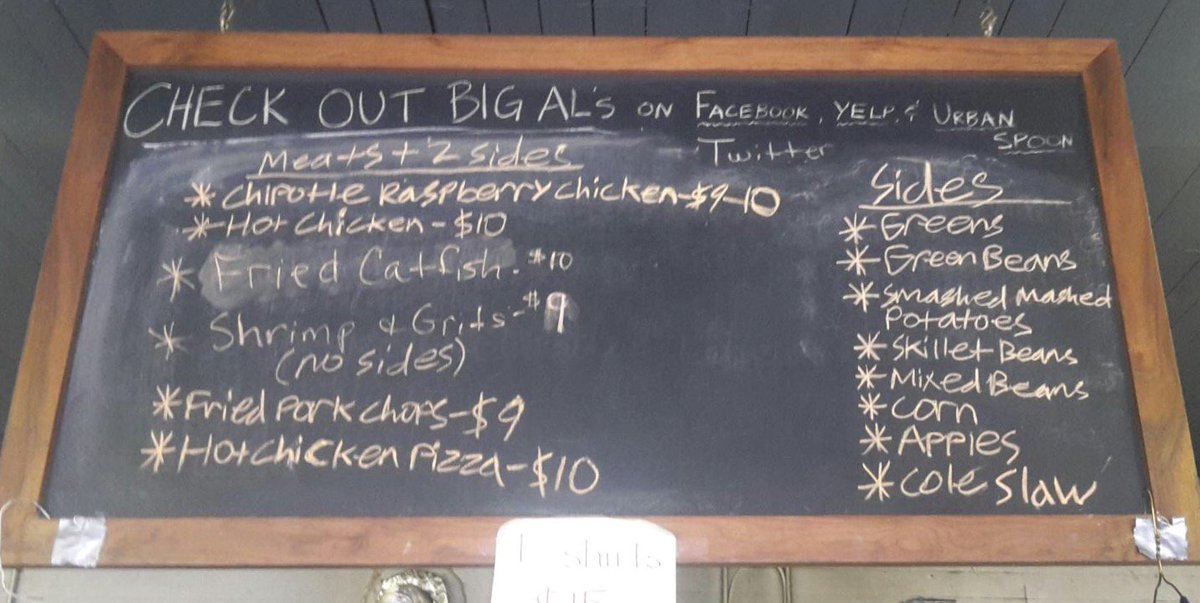 CHECK OUT BIG AL'S ON FACEBOOK, YELP, & URBAN
SPOON
Twitter
Meats + 2 sides
* Chipotle Raspberry Chicken - $9-10
* Hot Chicken - $10
* Fried Catfish. $10
* Shrimp & Grits - $9
(no sides)
* Fried Pork Chops - $9
* Hot Chicken Pizza - $10
Sides
* Greens
* Green Beans
* Smashed Mashed
Potatoes
* Skillet Beans
* Mixed Beans
* Corn
* Apples
* Cole Slaw
T shirts
$15